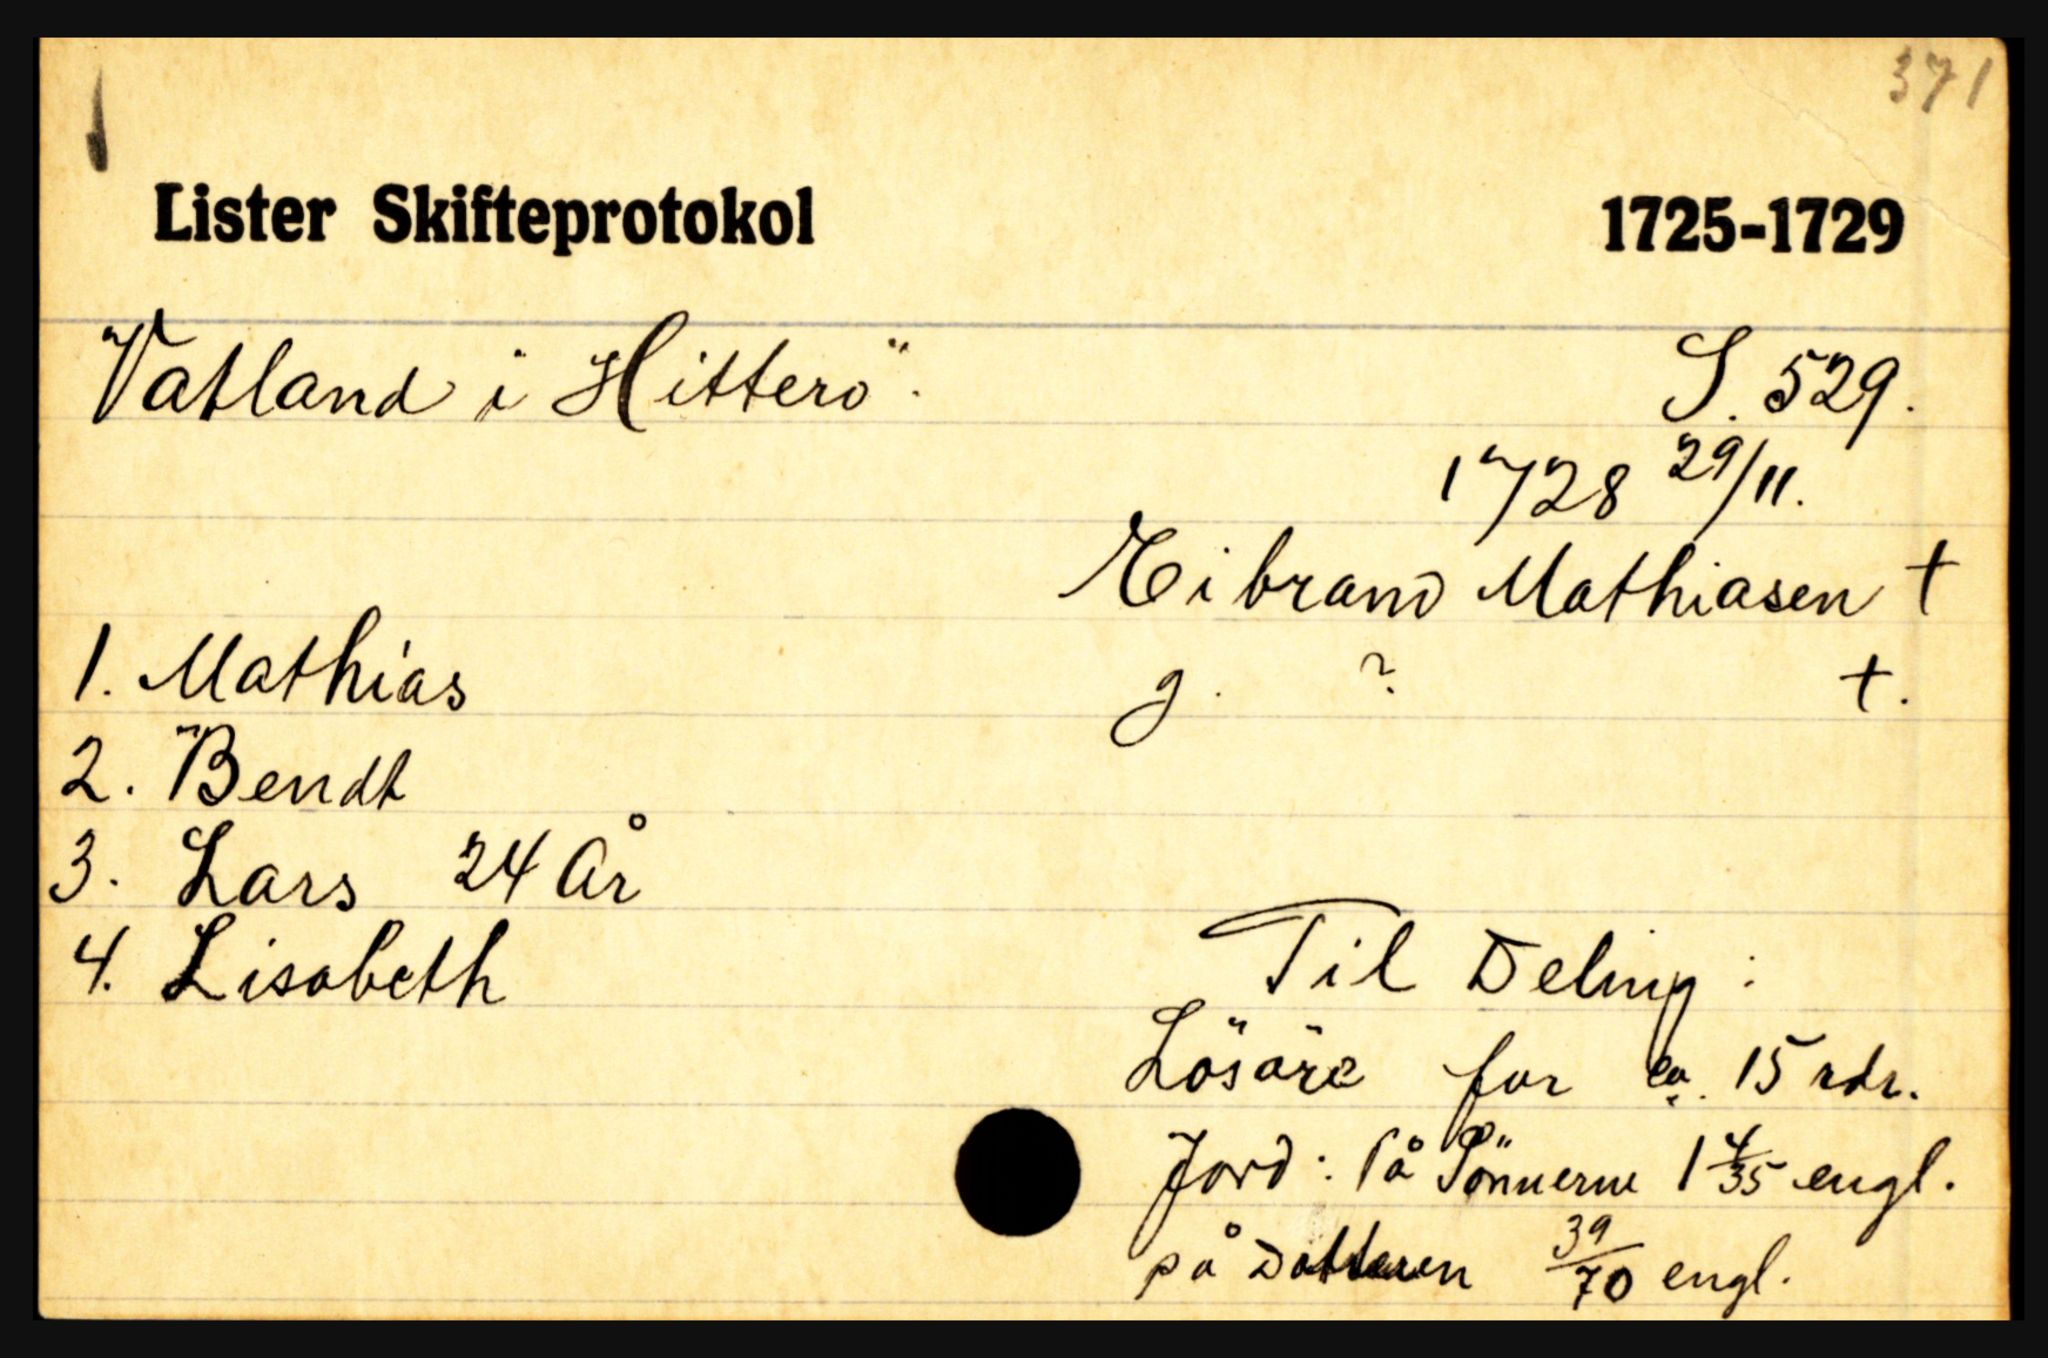 371
Lister Skifteprotokol 1725-1729
Vatland i Hitterö. S. 529.
1728 29/11.
Eibrand Mathiasen +
1. Mathias g. ? +.
2. Bendt
3. Lars 24 År
4. Lisabeth
Til Deling :
Lösöre for ca. 15 rdr.
Jord : På Sönnerne 1 4/35 engl.
på Datteren 39/70 engl.